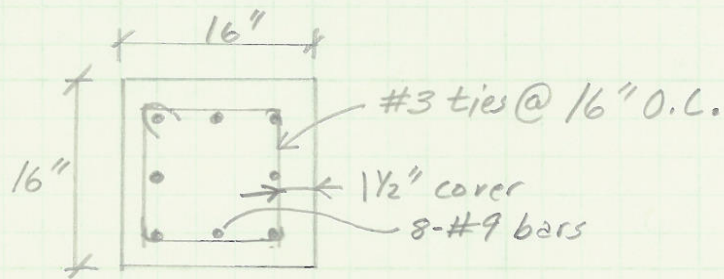 16"
#3 ties @ 16" O.C.
16"
1½" cover
8-#9 bars